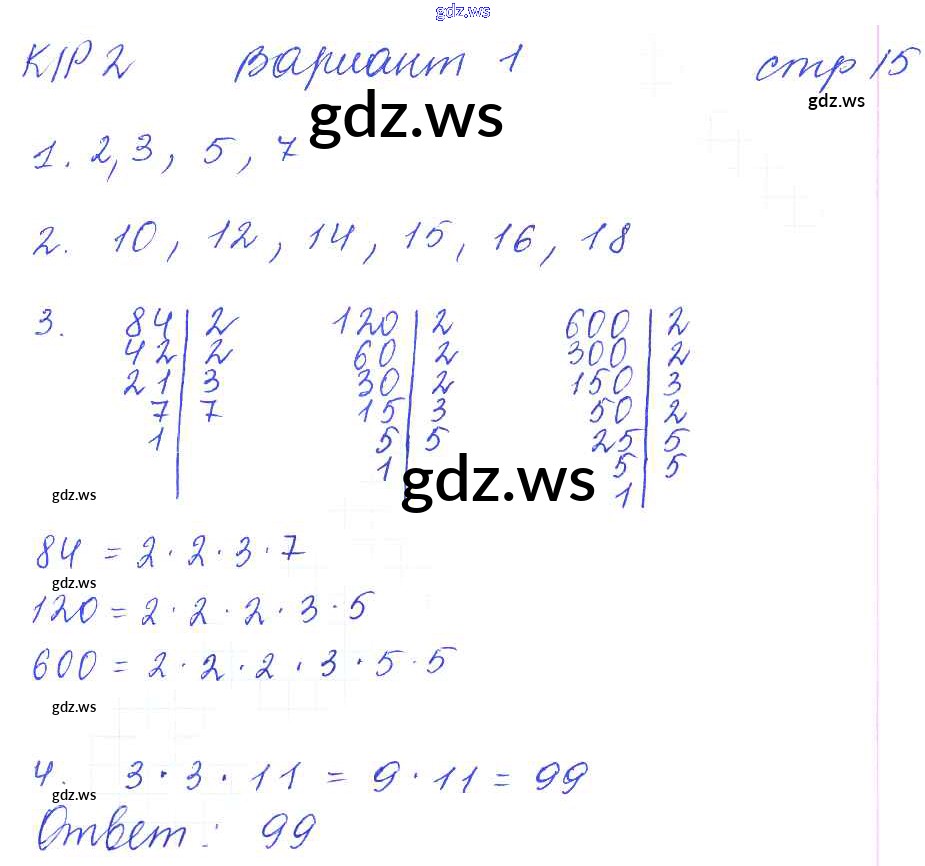 gdz.ws
К/Р 2 Вариант 1 стр 15
gdz.ws gdz.ws
1. 2, 3, 5, 7
2. 10, 12, 14, 15, 16, 18
3. 84 | 2 120 | 2 600 | 2
42 | 2 60 | 2 300 | 2
21 | 3 30 | 2 150 | 3
7 | 7 15 | 3 50 | 2
1 | 5 | 5 25 | 5
1 | 5 | 5
1 |
gdz.ws gdz.ws
84 = 2 · 2 · 3 · 7
gdz.ws
120 = 2 · 2 · 2 · 3 · 5
600 = 2 · 2 · 2 · 3 · 5 · 5
gdz.ws
4. 3 · 3 · 11 = 9 · 11 = 99
gdz.ws
Ответ: 99